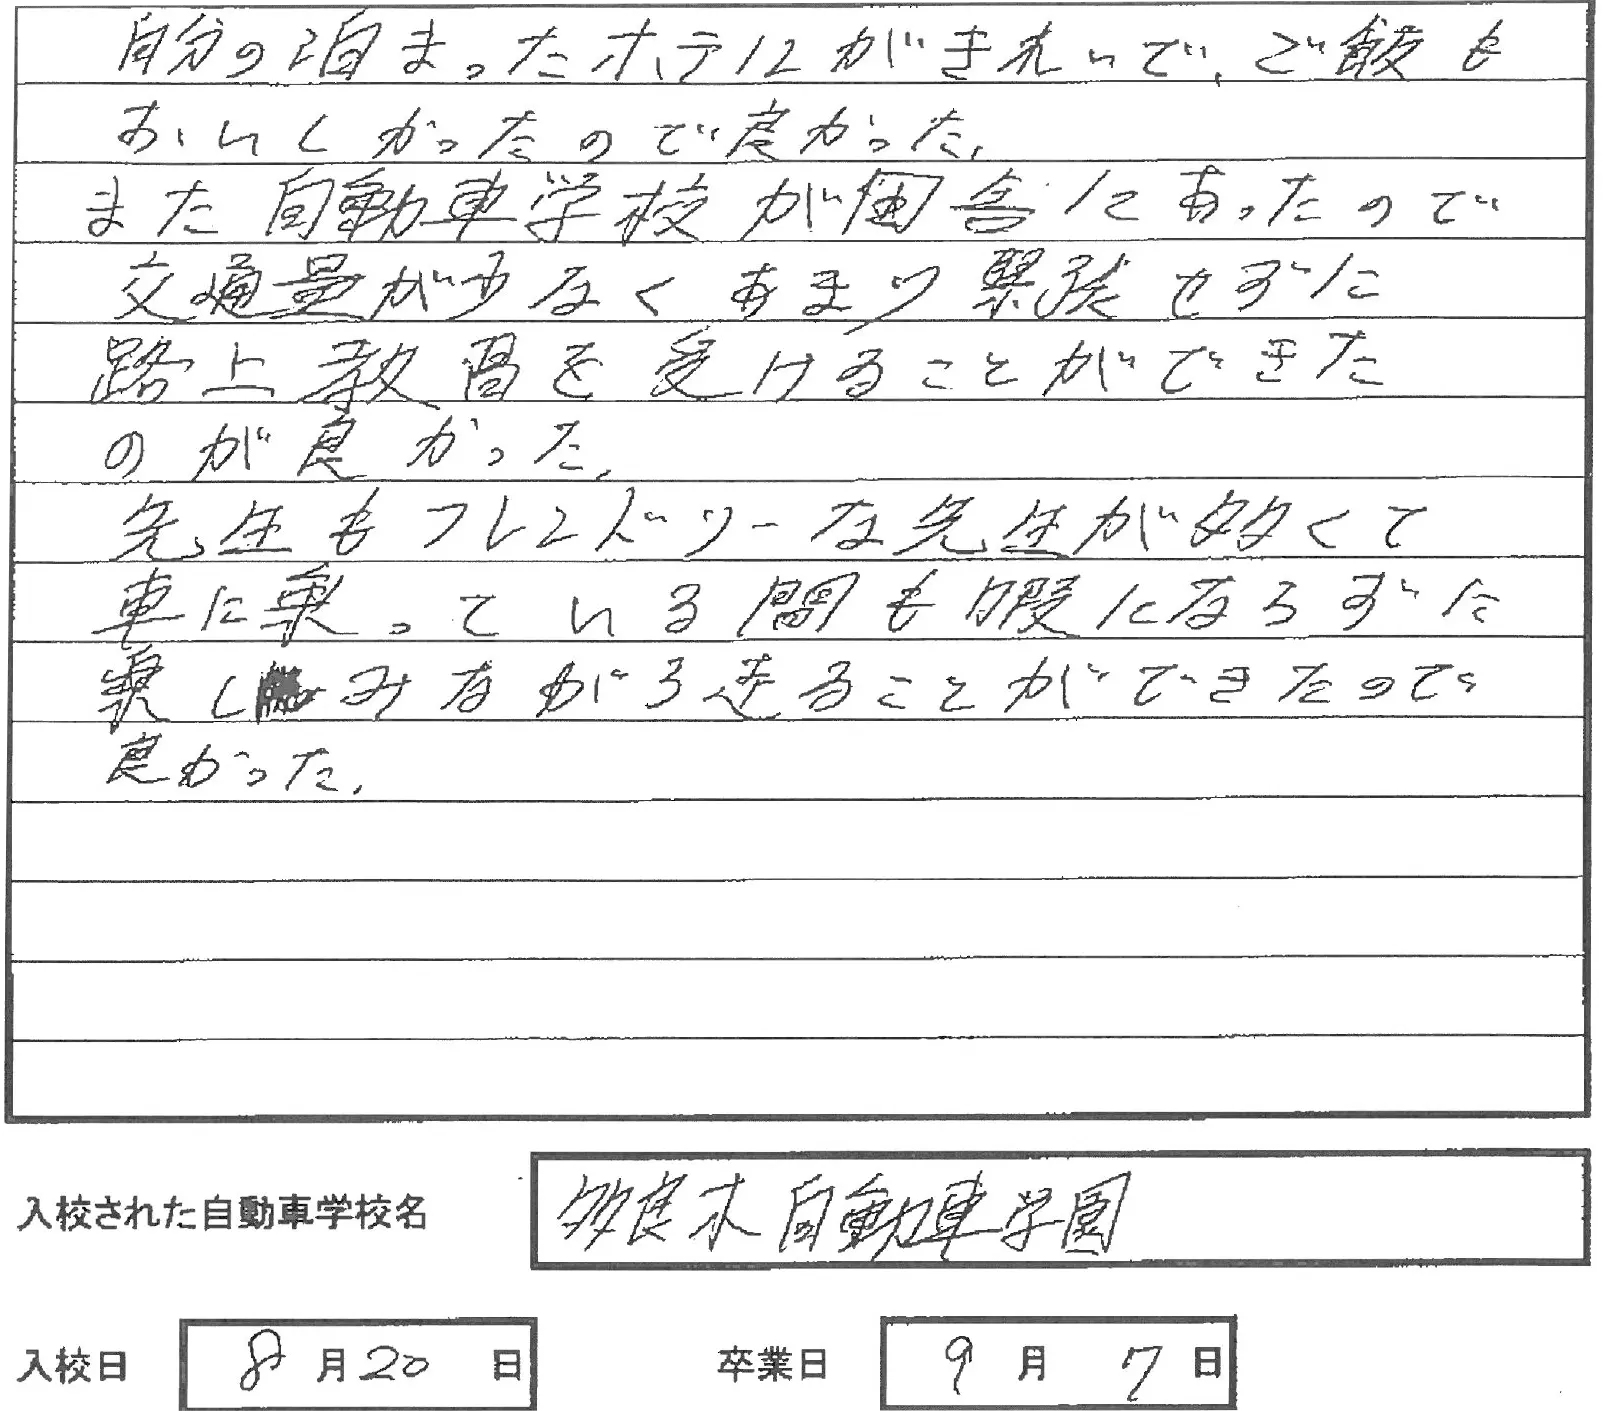 自分の泊まったホテルがきれいで、ご飯も
おいしかったので良かった。
また自動車学校が田舎にあったので
交通量が少なくあまり緊張せずに
路上教習を受けることができた
のが良かった。
先生もフレンドリーな先生が多くて
車に乗っている間も暇にならずに
楽しみながら走ることができたので
良かった。
入校された自動車学校名 多良木自動車学園
入校日 8月20日 卒業日 9月7日